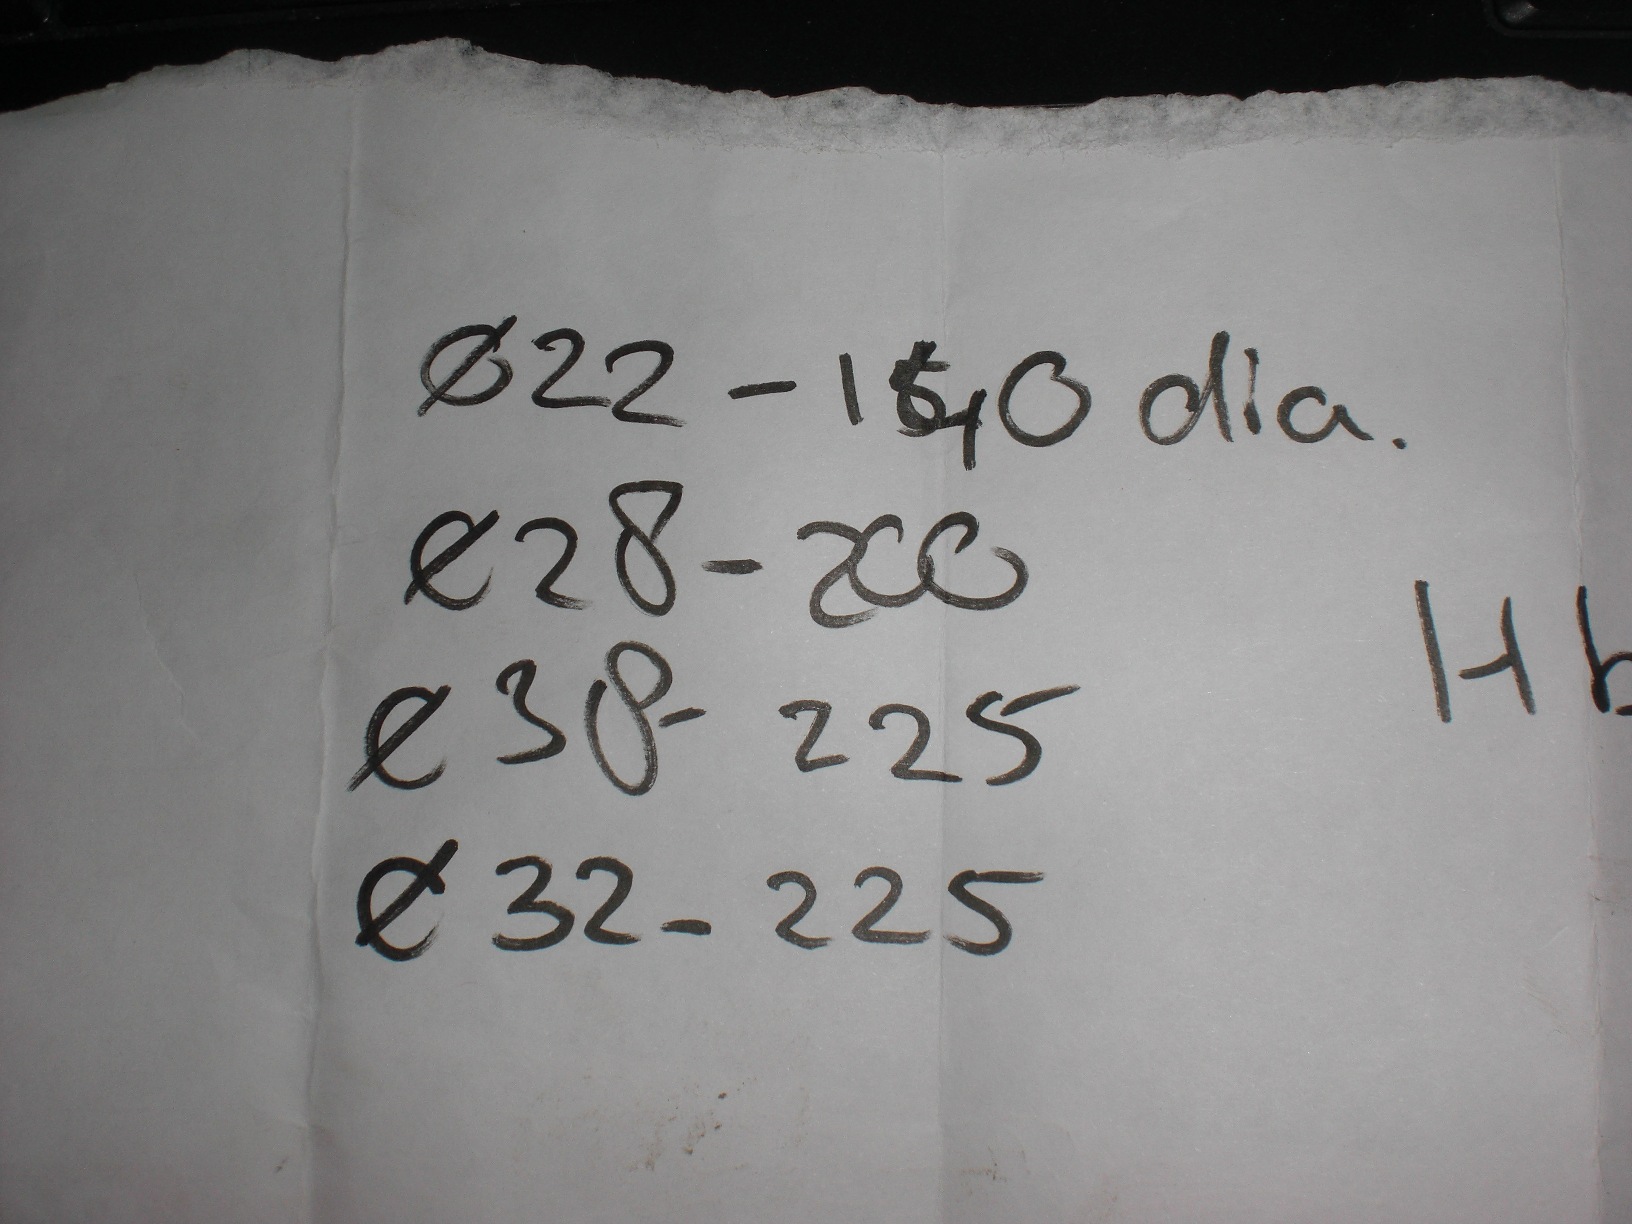 Ø22 - 140 dia.
Ø28 - 200
Ø38 - 225
Ø32 - 225
H